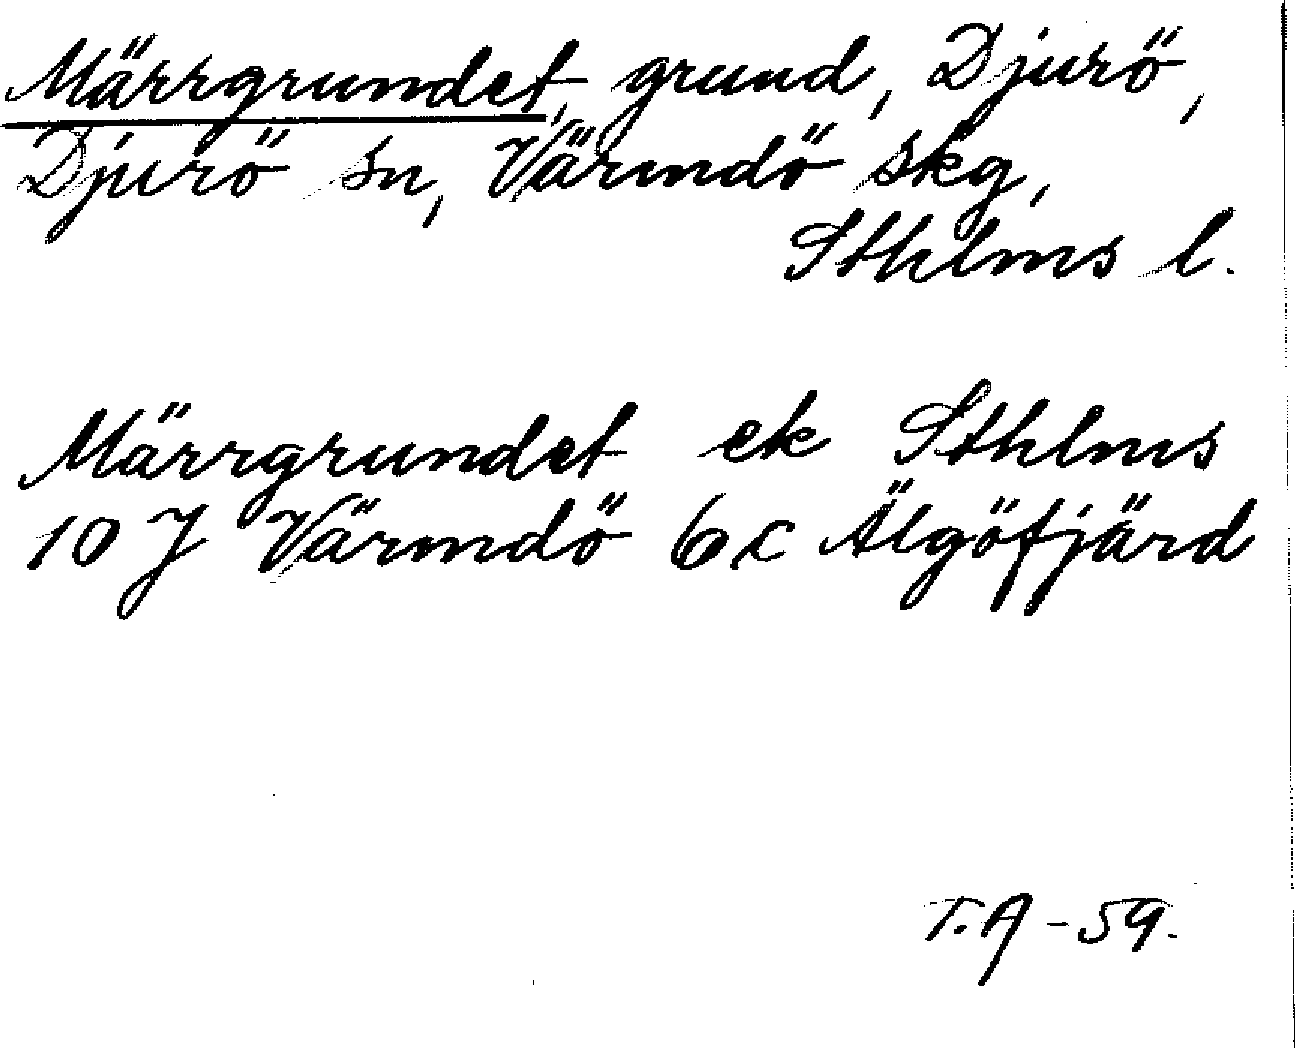 Märrgrundet, grund, Djurö,
Djurö sn, Värmdö skg,
Sthlms l.
Märrgrundet ek Sthlms
10 J Värmdö 6 c Älgöfjärd
T.A -59.